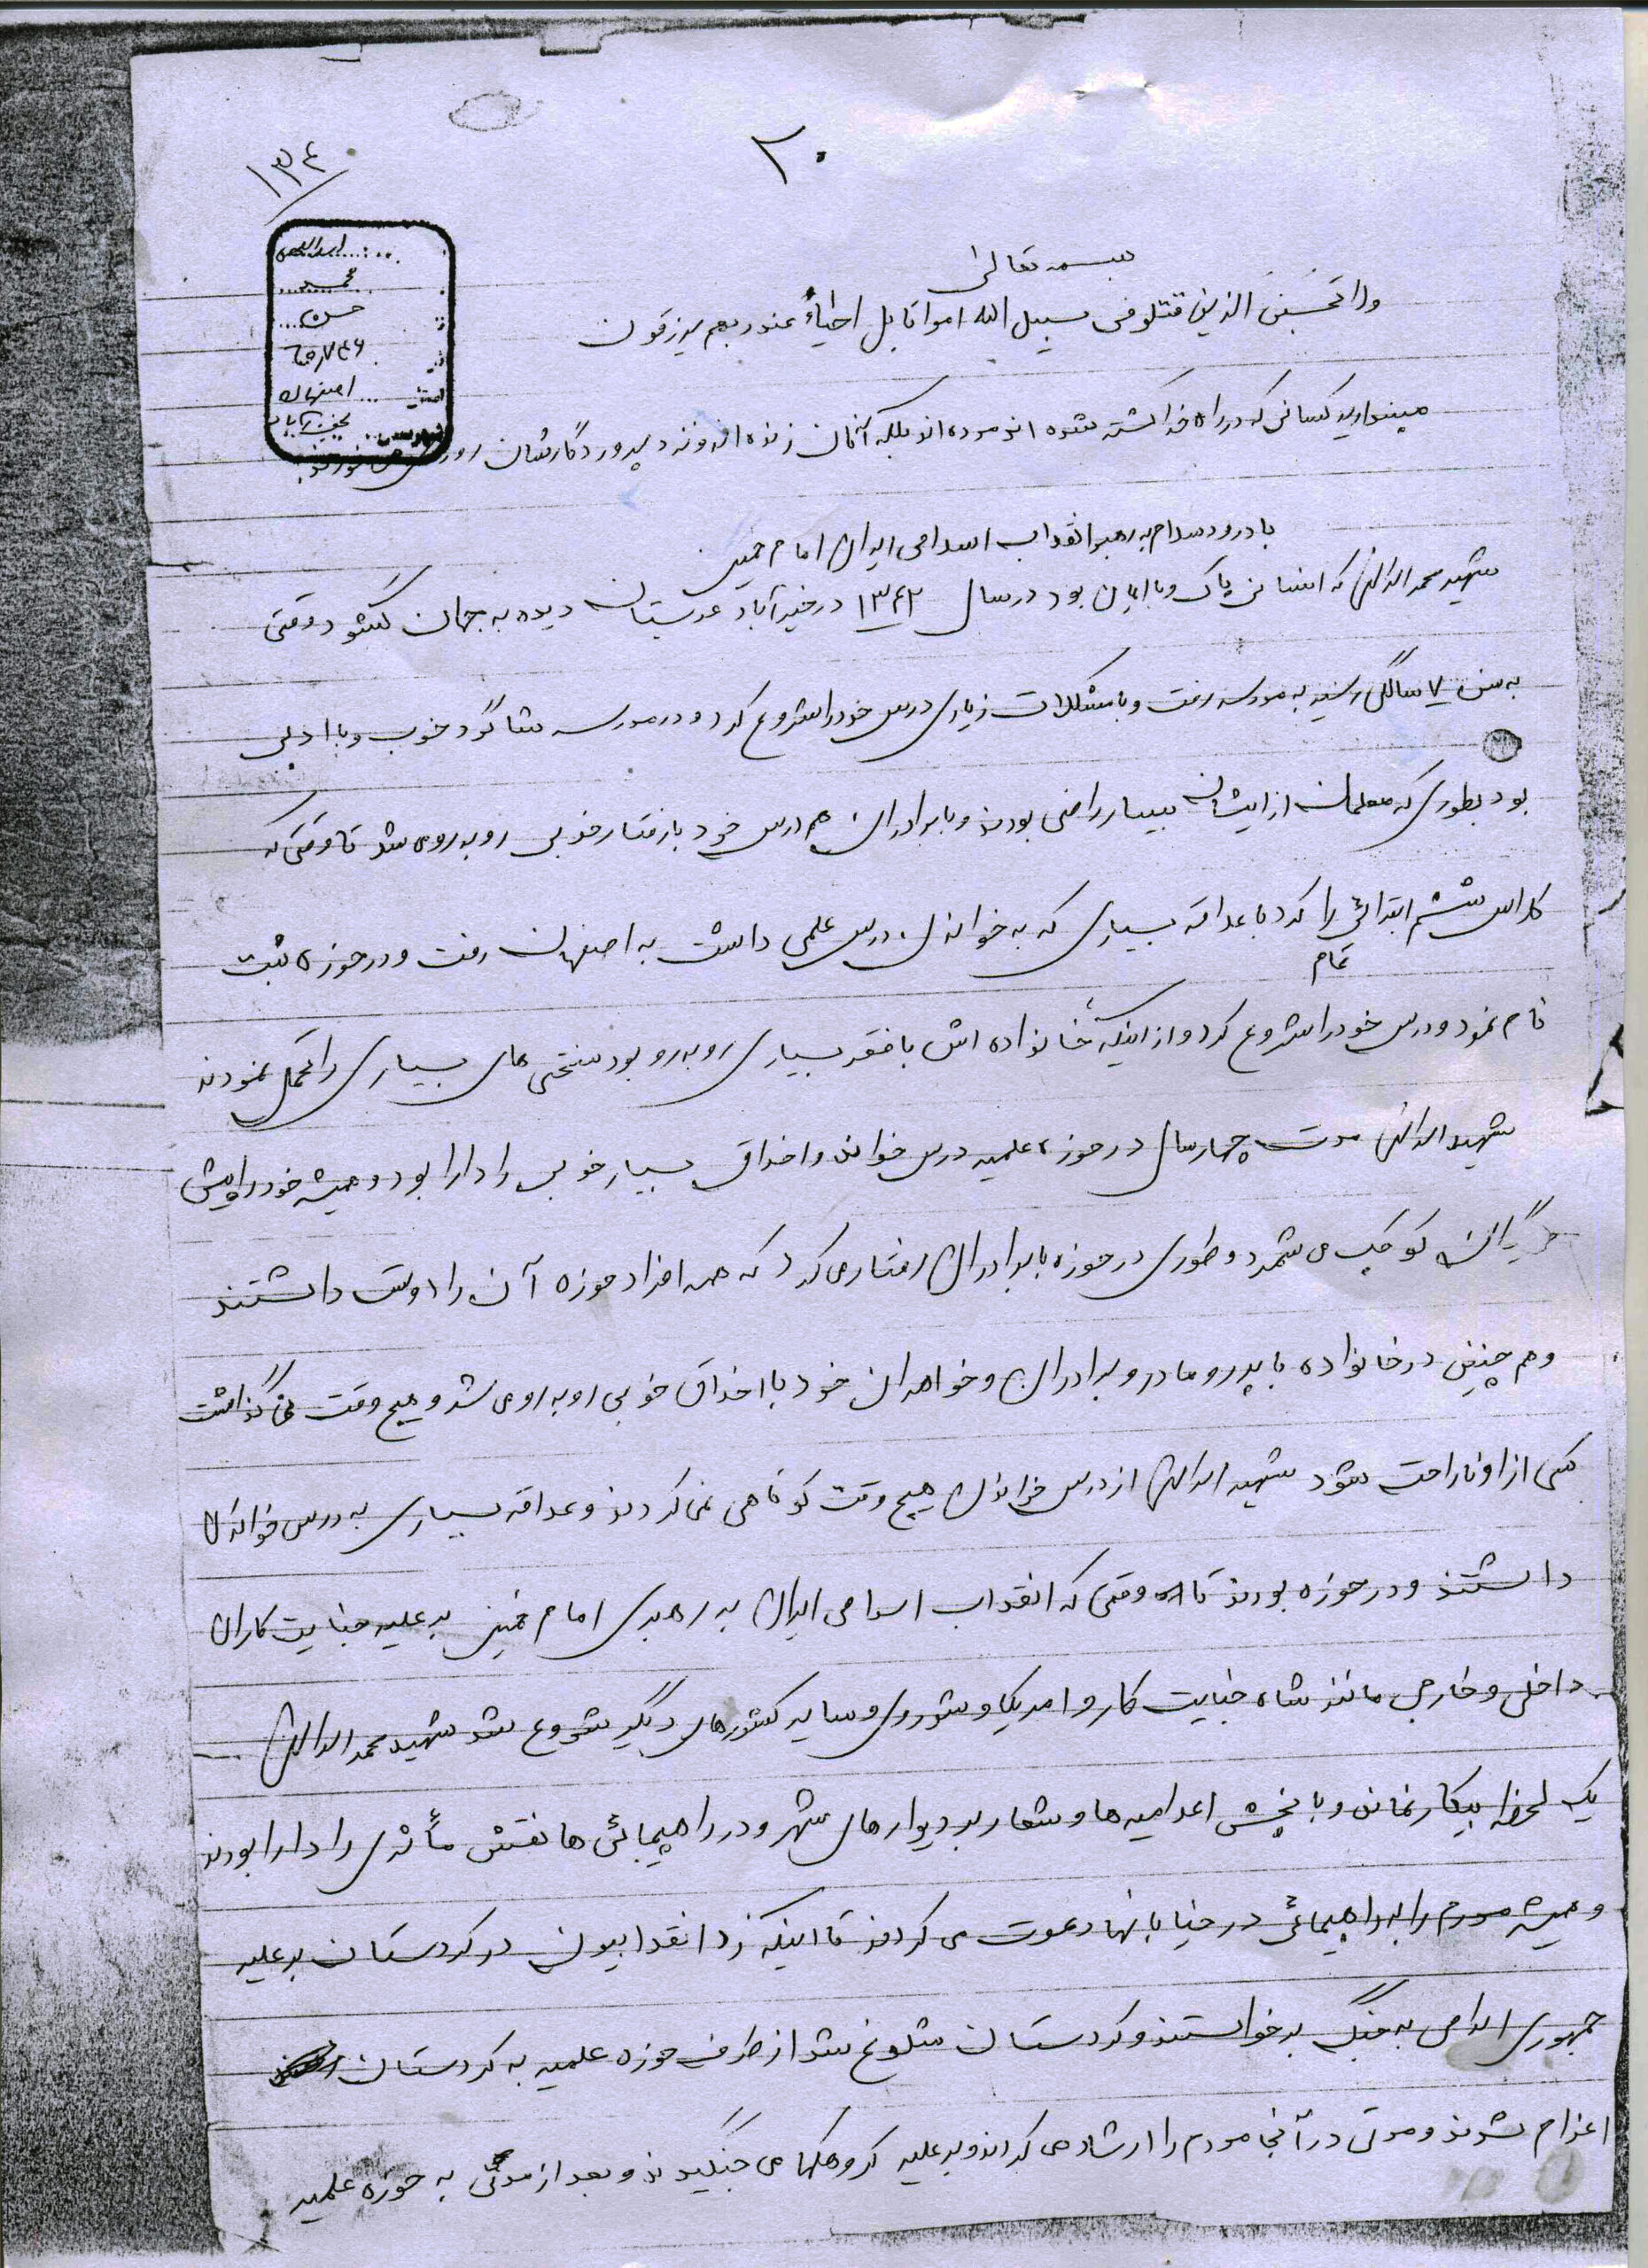 ۲۰
۱۳۴
اسداللهی
محمد
حسن
اصفهان
بسمه تعالی
ولا تحسبن الذین قتلو فی سبیل الله امواتا بل احیاءٌ عند ربهم یرزقون
مپندارید کسانی که در راه خدا کشته شده اند مرده اند بلکه آنان زنده اند و نزد پروردگارشان روزی می خورند
با درود و سلام به رهبر انقلاب اسلامی ایران امام خمینی
شهید محمد اسداللهی که انسانی پاک و با ایمان بود در سال ۱۳۴۲ در خیرآباد عربستان دیده به جهان گشود وقتی
به سن ۷ سالگی رسید به مدرسه رفت و با مشکلات زیادی درس خود را شروع کرد و در مدرسه شاگرد خوب و با ادبی
بود بطوری که معلمان از ایشان بسیار راضی بودند و با برادران هم درس خود با رفتار خوبی روبه رو می شد تا وقتی که
کلاس ششم ابتدائی را تمام کرد با علاقه بسیاری که به خواندن درس علمی داشت به اصفهان رفت و در حوزه ثبت
نام نمود و درس خود را شروع کرد و از اینکه خانواده اش با فقر بسیاری روبه رو بود سختی های بسیاری را تحمل نمودند
شهید اسداللهی مدت چهار سال در حوزه علمیه درس خواند و اخلاق بسیار خوبی را دارا بود و همیشه خود را پیش
دیگران کوچک می شمرد و طوری در حوزه با برادران رفتار می کرد که همه افراد حوزه آن را دوست داشتند
و هم چنین در خانواده با پدر و مادر و برادران و خواهران خود با اخلاق خوبی روبه رو می شد و هیچ وقت نمی گذاشت
کسی از او ناراحت شود شهید اسداللهی از درس خواندن هیچ وقت کوتاهی نمی کردند و علاقه بسیاری به درس خواندن
داشتند و در حوزه بودند تا وقتی که انقلاب اسلامی ایران به رهبری امام خمینی بر علیه جنایت کاران
داخلی و خارجی مانند شاه جنایت کار و امریکا و شوروی و سایر کشورهای دیگر شروع شد شهید محمد اسداللهی
یک لحظه بیکار نماند و با پخش اعلامیه ها و شعار بر دیوارهای شهر و در راهپیمائی ها نقش مأثری را دارا بودند
و همیشه مردم را به راهپیمائی در خیابانها دعوت می کردند تا اینکه ضد انقلابیون در کردستان بر علیه
جمهوری اسلامی به جنگ برخواستند و کردستان شلوغ شد از طرف حوزه علمیه به کردستان
اعزام شدند و مدتی در آنجا مردم را ارشاد می کردند و بر علیه گروهکها می جنگیدند و بعد از مدتی به حوزه علمیه